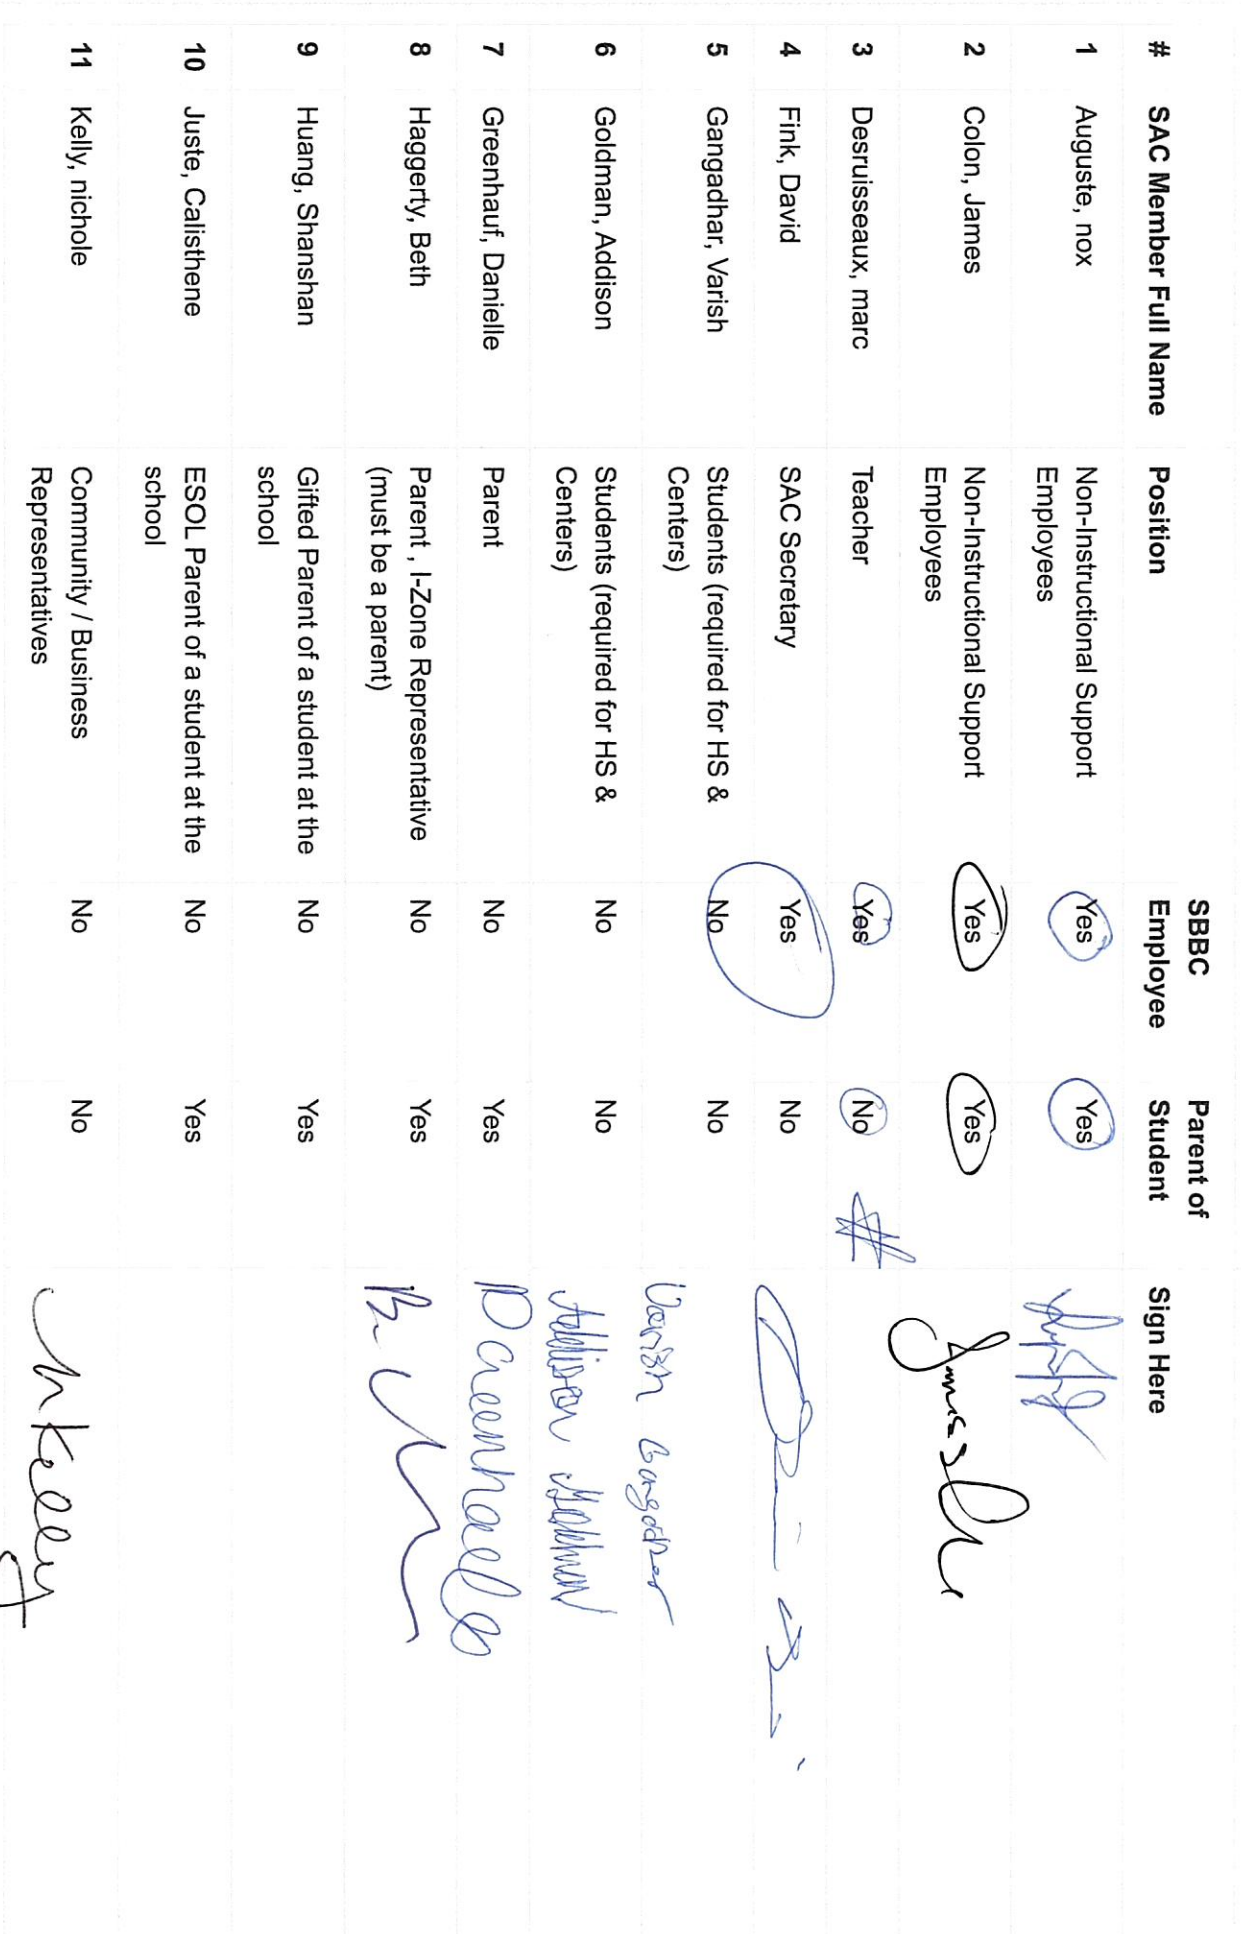 # SAC Member Full Name Position SBBC Employee Parent of Student Sign Here
1 Auguste, nox Non-Instructional Support Employees Yes Yes
2 Colon, James Non-Instructional Support Employees Yes Yes
3 Desruisseaux, marc Teacher Yes No
4 Fink, David SAC Secretary Yes No
5 Gangadhar, Varish Students (required for HS & Centers) No No Varish Gangadhar
6 Goldman, Addison Students (required for HS & Centers) No No Addison Goldman
7 Greenhauf, Danielle Parent No Yes
8 Haggerty, Beth Parent , I-Zone Representative (must be a parent) No Yes
9 Huang, Shanshan Gifted Parent of a student at the school No Yes
10 Juste, Calisthene ESOL Parent of a student at the school No Yes
11 Kelly, nichole Community / Business Representatives No No nkelly